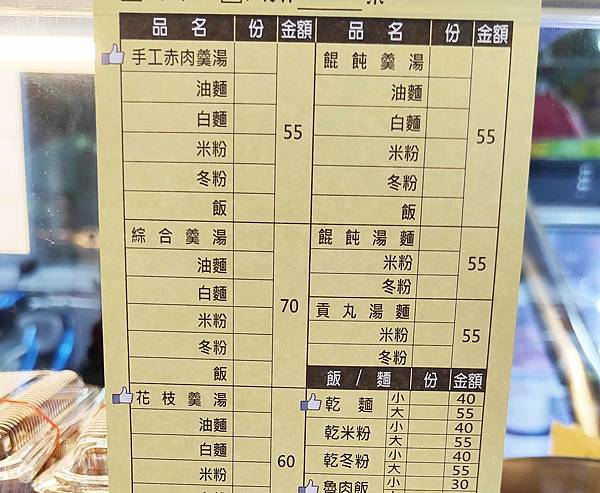 品名 份 金額
手工赤肉羹湯
油麵
白麵
米粉
冬粉
飯
55
綜合羹湯
油麵
白麵
米粉
冬粉
飯
70
花枝羹湯
油麵
白麵
米粉
60
品名 份 金額
餛飩羹湯
油麵
白麵
米粉
冬粉
飯
55
餛飩湯麵
米粉
冬粉
55
貢丸湯麵
米粉
冬粉
55
飯/麵 份 金額
乾麵 小 40
大 55
乾米粉 小 40
大 55
乾冬粉 小 40
大 55
魯肉飯 小 30